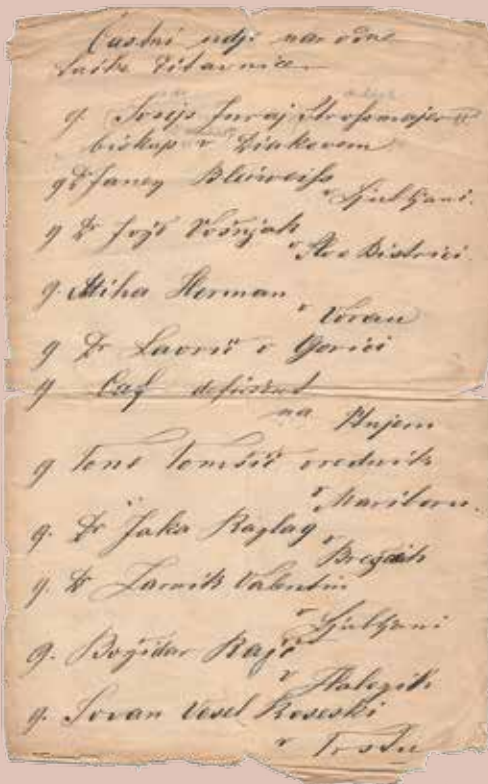 Častni udji narodne
čitavnice
g. Josip Juraj Strossmajer
biskup v Diakovem
g Dr Janez Bleiweiss
v Ljubljani.
g Dr Jože Vošnjak
v Slov Bistrici
g. Miha Herman
v
g Dr Lavrič v Gorici
g Caf deficient
na Ptujem
g Tone Tomšič vrednik
v Mariboru.
g. Dr Jaka Razlag
v Brežcah
g. Dr Zarnik Valentin
v Ljubljani
g. Božidar Raič
v Halozih
g. Jovan Vesel Koseski
v Trstu